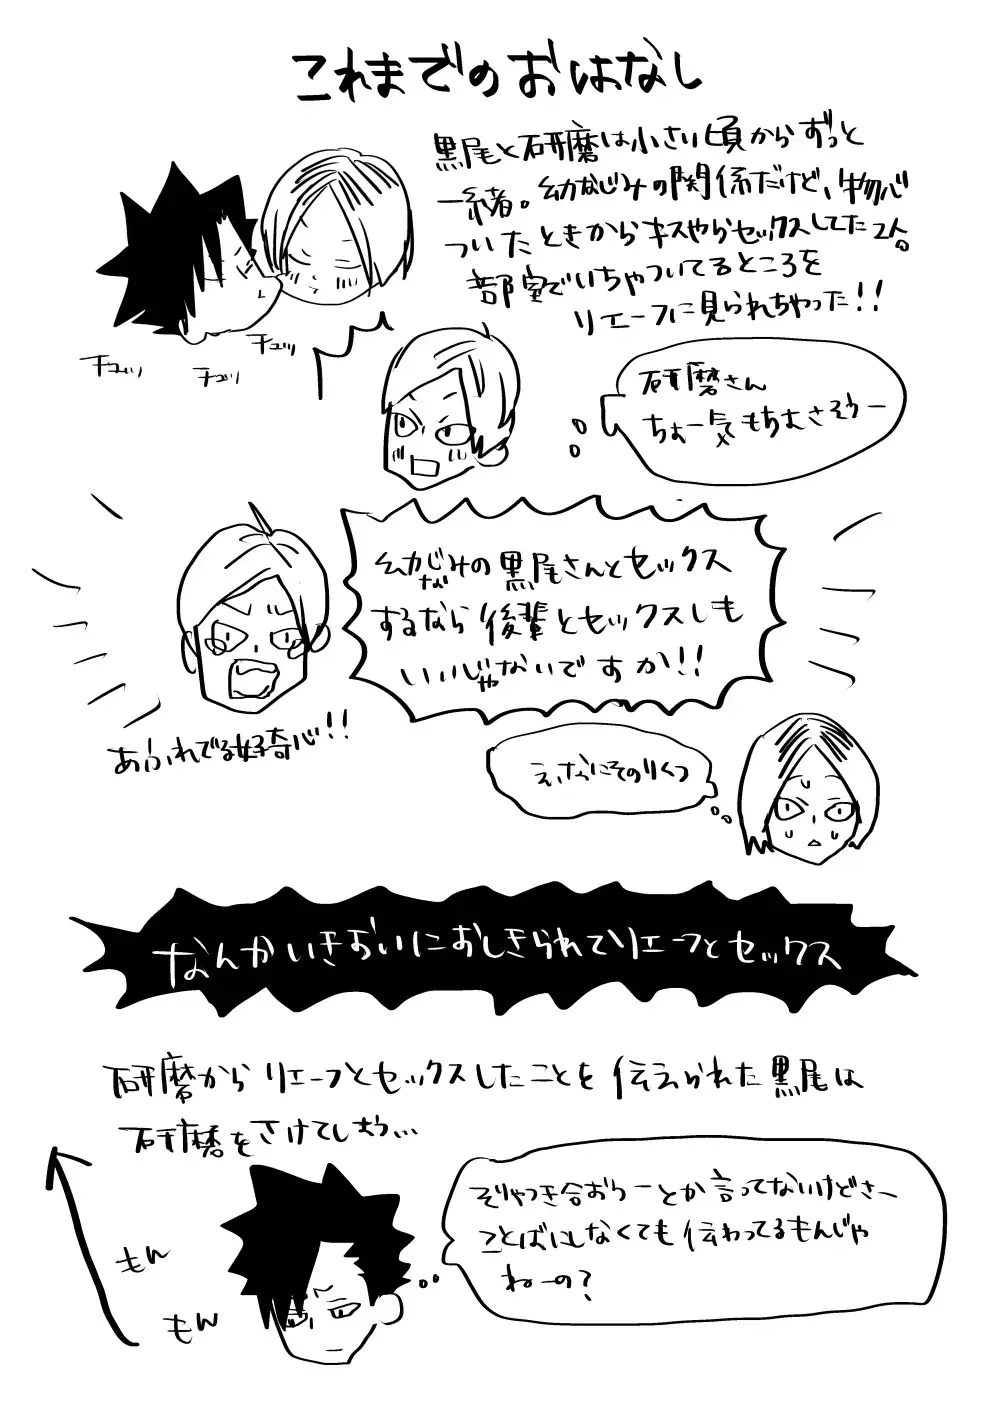 これまでのおはなし
黒尾と研磨は小さい頃からずっと
一緒。幼なじみの関係だけど、物心
ついたときからキスやらセックスしてた2人。
部室でいちゃついてるところを
リエーフに見られちゃった!!
チュッ
チュッ
チュッ
研磨さん
ちょー気もちよさそうー
幼なじみの黒尾さんとセックス
するなら後輩とセックスしても
いいじゃないですか!!
あふれでる好奇心!!
えっなにそのりくつ
なんかいきおいにおしきられてリエーフとセックス
研磨からリエーフとセックスしたことを伝えられた黒尾は
研磨をさけてしまう…
もん
もん
そりゃつき合おうーとか言ってないけどさー
ことばにしなくても伝わってるもんじゃ
ねーの?